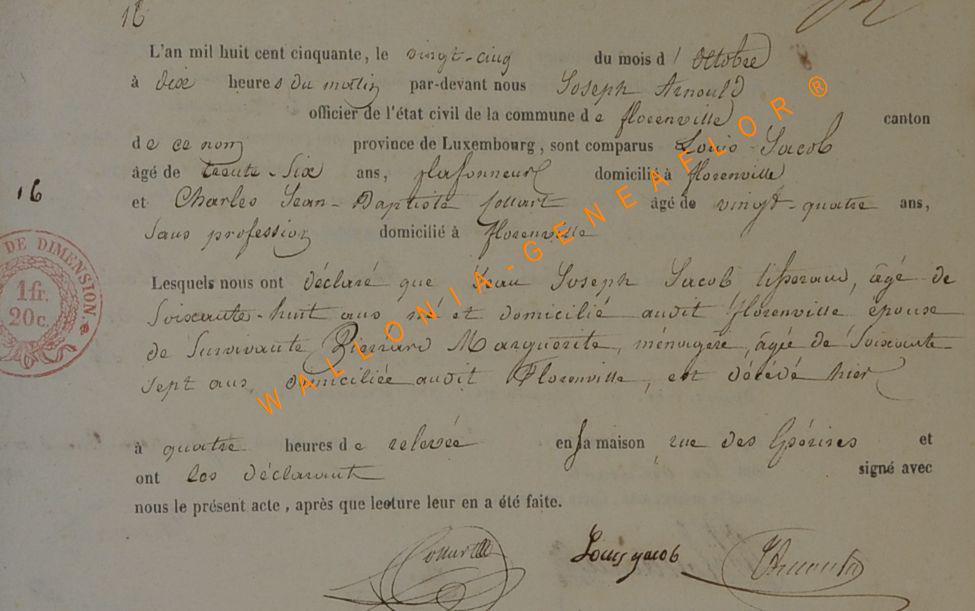 16
L'an mil huit cent cinquante, le vingt-cinq du mois d' Octobre
à dix heures du matin par-devant nous Joseph Arnould
officier de l'état civil de la commune de florenville canton
de ce nom province de Luxembourg, sont comparus Louis Jacob
âgé de trente-six ans, plafonneur domicilié à florenville
16
et Charles Jean-Baptiste Collart âgé de vingt-quatre ans,
sans profession domicilié à florenville
DE DIMENSION
1 fr.
20 c.
Lesquels nous ont déclaré que Jean Joseph Jacob tisserand, âgé de
soixante-huit ans né et domicilié audit florenville époux
de survivante Pierrard Marguerite, ménagère, âgée de soixante-
sept ans, domiciliée audit Florenville, est décédé hier
à quatre heures de relevée en sa maison rue des et
ont les déclarant signé avec
nous le présent acte, après que lecture leur en a été faite.
Collart Louis jacob
WALLONIA-GENEAFLOR ®